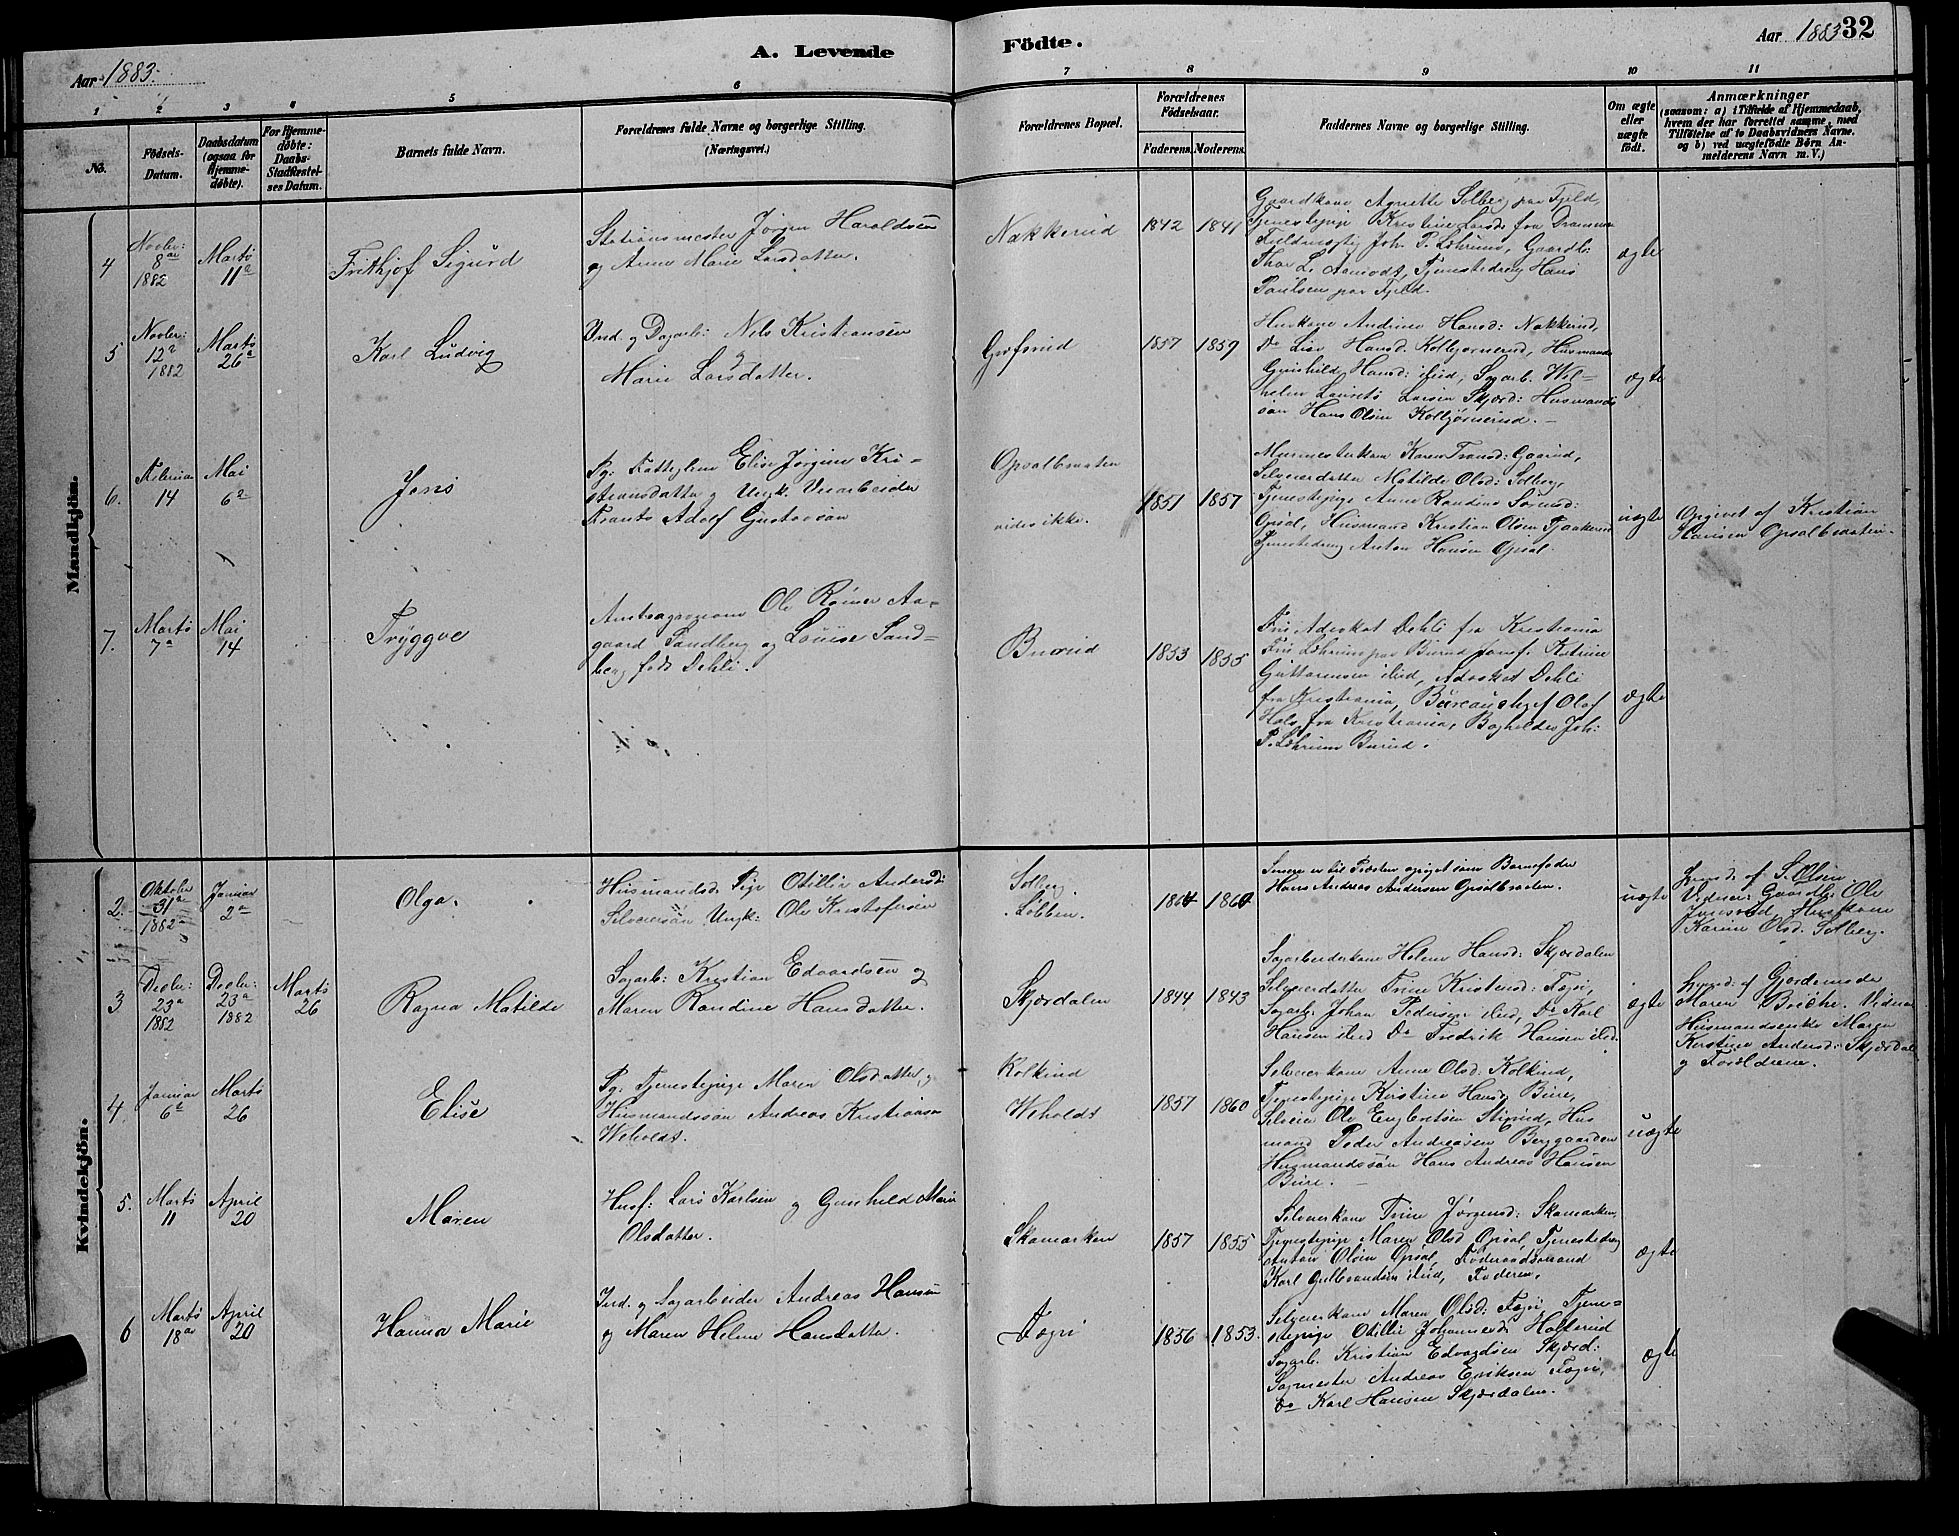 Aar 1883.
A. Levende
Födte.
Aar 1883
32
1
2
3
4
5
6
7
8
9
10
11
No.
Födsels-
Datum.
Daabsdatum
(ogsaa for
Hjemme-
döbte).
For Hjemme-
döbte:
Daabs-
Stadfæstel-
ses Datum.
Barnets fulde Navn.
Forældrenes fulde Navne og borgerlige Stilling.
(Næringsvei.)
Forældrenes Bopæl.
Forældrenes
Födselsaar.
Faderens.
Moderens.
Faddernes Navne og borgerlige Stilling.
Om ægte
eller
uægte
födt.
Anmærkninger
(saasom: a) i Tilfælde af Hjemmedaab,
hvem der har forrettet samme, med
Tilföielse af to Daabsvidners Navne.
og b) ved uægtefödte Börn An-
melderens Navn m. V.)
Mandkjön.
4
Novbr:
8de
1882
Marts
11te
Frithjof Sigurd
Stationsmester Jörgen Haraldsen
og Anne Marie Larsdatter.
Nakkerud
1842
1841
Gaardkone Agnette Solberg paa Fjeld,
Tjenestepige Kristine Larsd. fra Drammen
Joh. P. Löhrum, Gaardb:
Thor L. Aamodt, Tjenestedreng Hans
Paulsen paa Fjeld.
ægte
5
Novbr:
12te
1882
Marts
26de
Karl Ludvig
Ind. og Dagarb: Nils Kristiansen
og
Marie Larsdatter.
1857
1859
Huskone Andrine Hansd: Nakkerud,
Do Lise Hansd. Kolbjörnsrud, Husmands
Gunhild Hansd: ibid, Sagarb. Wil-
helm Laurits Larsen Skjærd: Husmands
sön Hans Olsen Kolbjörnsrud. –
ægte
6.
Februar
14
Mai
6te
Jens
Pg: Elise Jörgine Kri-
stiansdatter og Ungk.
Frants Adolf Gustavsön
Opsalbraaten
vides ikke.
1851
1857
Murmesterkone Karen Fransd: Gaarud,
Selveierdatter Matilde Olsd: Solberg,
Tjenestepige Anne Randine Sörensd:
Opsal, Husmand Kristian Olsen
Tjenestedreng Anton Hansen Opsal.
uægte
Opgivet af Kristian
Hansen Opsalbraaten.
7.
Marts
7de
Mai
14
Tryggve
Ole Reiner Aa-
gaard Sandberg og Louise Sand-
berg föds Dehli.
Buerud
1853
1855
Fru Advokat Dehli fra Kristiania
Fru Löhrum paa Burud Jomf. Katrine
Guttormsen ibid, Advokat Dehli
fra Kristiania, Bureauchef Olaf
Hals fra Kristiania, Bogholder Joh:
P. Löhrum Burud.
ægte
Kvindekjön.
2.
Oktober
31te
1882
Januar
2de
Olga.
Husmandsd. Pige Otillie Andersd:
Selveiersön Ungk: Ole Kristofersen
Solberg.
Löbben.
1864
1860
Senere er til Præsten opgivet som Barnefader
Hans Andreas Andersen Opsalbraaten.
uægte
Hjemd: af S. Olsen.
Vidner: Gaardb: Ole
Huskone
Karine Olsd. Solberg.
3
Decbr:
23de
1882
Decbr:
23de
1882
Marts
26
Ragna Matilde
Sagarb: Kristian Edvardsen og
Maren Randine Hansdatter.
Skjærdalen
1844
1843
Sagarbeiderkone Helene Hansd: Skjærdalen
Selveierdatter Trine Kristensd: Fægri,
Sagarb. Johan Pedersen ibid, Do Karl
Hansen ibid Do Fredrik Hansen ibid.
ægte
Hjemd: af Gjordemoder
Maren Vidner
Husmandsenke Maren
Kerstine Andersd: Skjærdal
og Forældrene.
4.
Januar
6te
Marts
26
Elise
Pg: Tjenestepige Maren Olsdatter, og
Husmandssön Andreas Kristiansen
Weholdt.
Rolkind
Weholdt
1857
1860
Selveierkone Anne Olsd: Kolkind,
Tjenestepige Kerstine Hansd. Bure,
Selveier Ole Engbretsen Hus
mand Peder Andreasen Berggaarden
Husmandssön Hans Andreas Hansen
Bure. –
uægte
5.
Marts
11
April
20
Maren
Husf: Lars Karlsen og Gunhild Marie
Olsdatter.
Skamarken
1857
1855
Selveierkone Trine Jörgensd: Skamarken,
Tjenestepige Maren Olsd Opsal, Tjenestedreng
Anton Olsen Opsal, Föderaadsmand
Karl Gulbrandsen ibid, Faderen.
ægte
6
Marts
18de
April
20
Hanna Marie
Ind. og Sagarbeider Andreas Hansen
og Maren Helene Hansdatter.
Fægri
1856
1853.
Selveierkone Maren Olsd: Fægri, Tjene-
stepige Otillie Johannesd:
Sagarb. Kristian Edvardsen Skjærd:
Sagmester Andreas Eriksen Fægri,
Do Karl Hansen Skjærdalen.
ægte